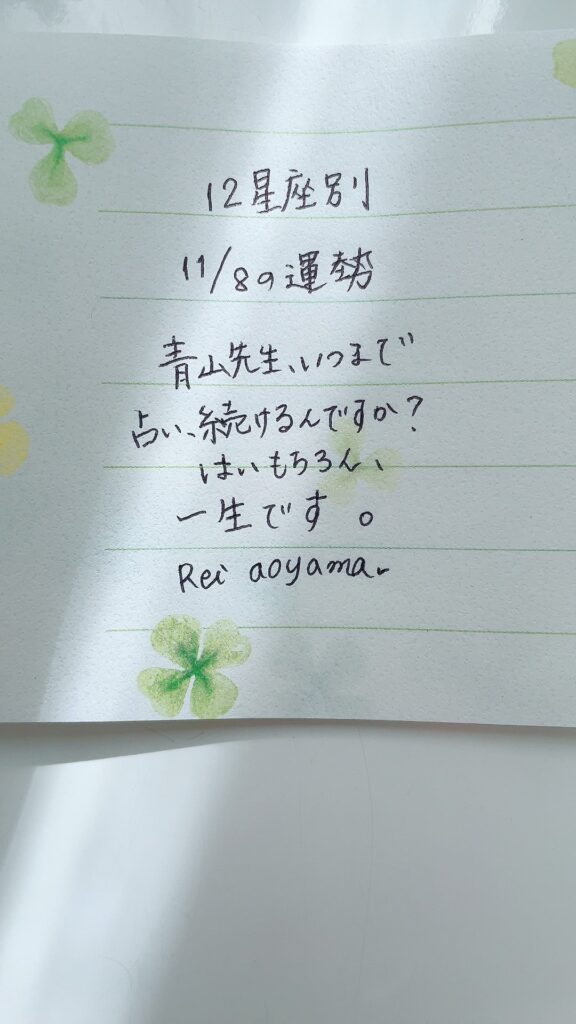 12星座別
11/8の運勢
青山先生、いつまで
占い、続けるんですか?
はいもちろん、
一生です。
Rei aoyama.